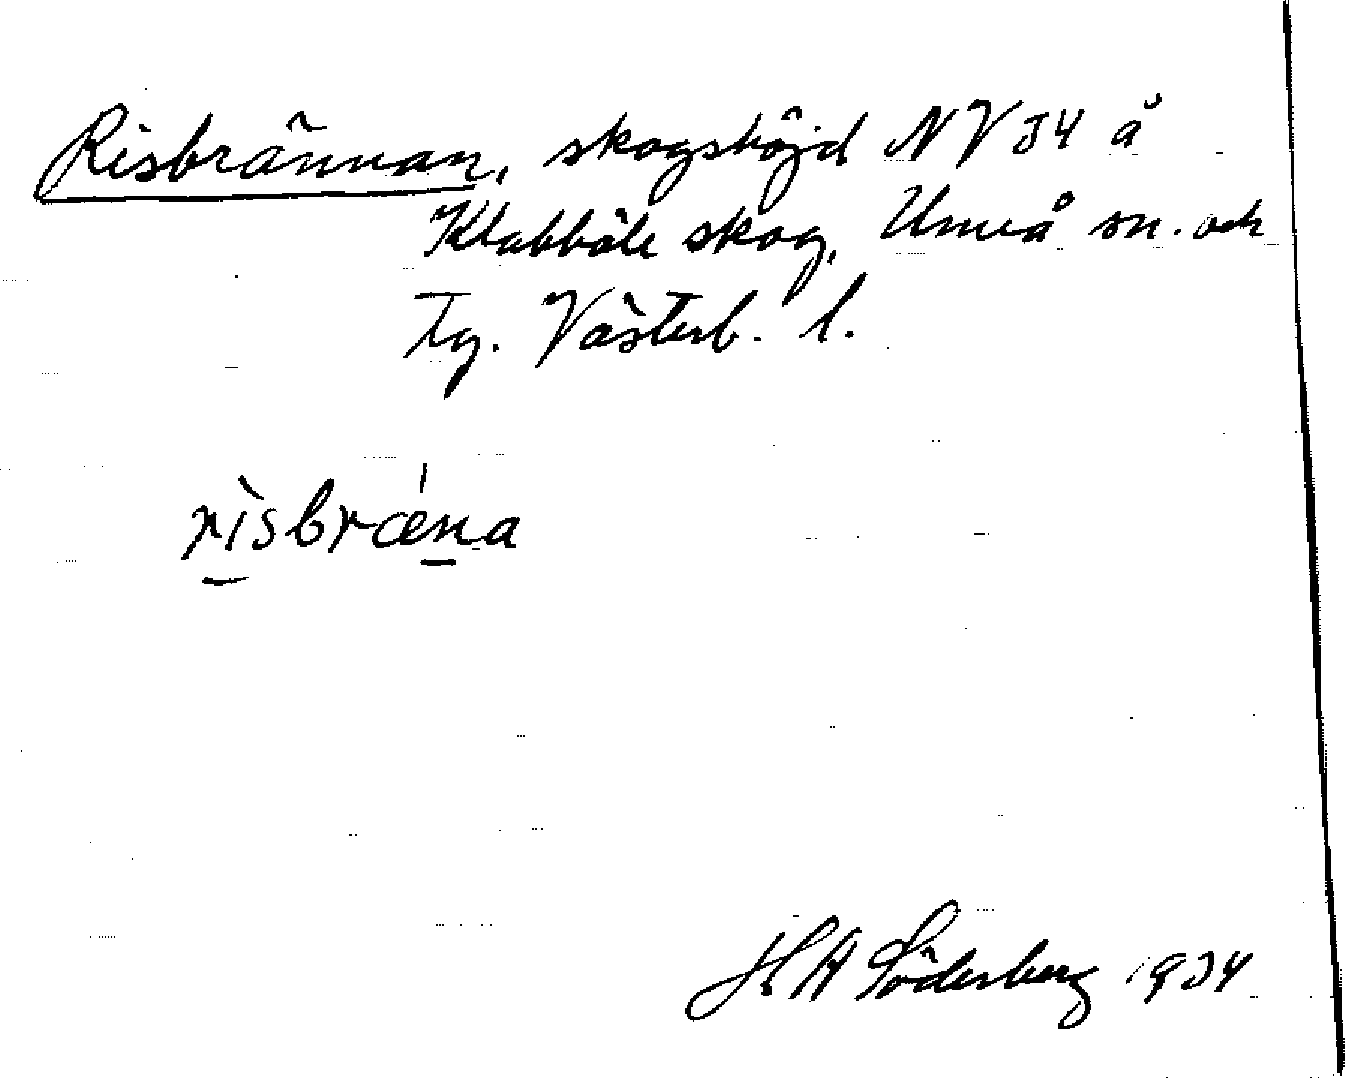 Risbrännan, skogshöjd NV 34 å
Klabböle skog, Umeå sn. och
tg. Västerb. l.
rìsbræ´na
H A Söderberg 1934